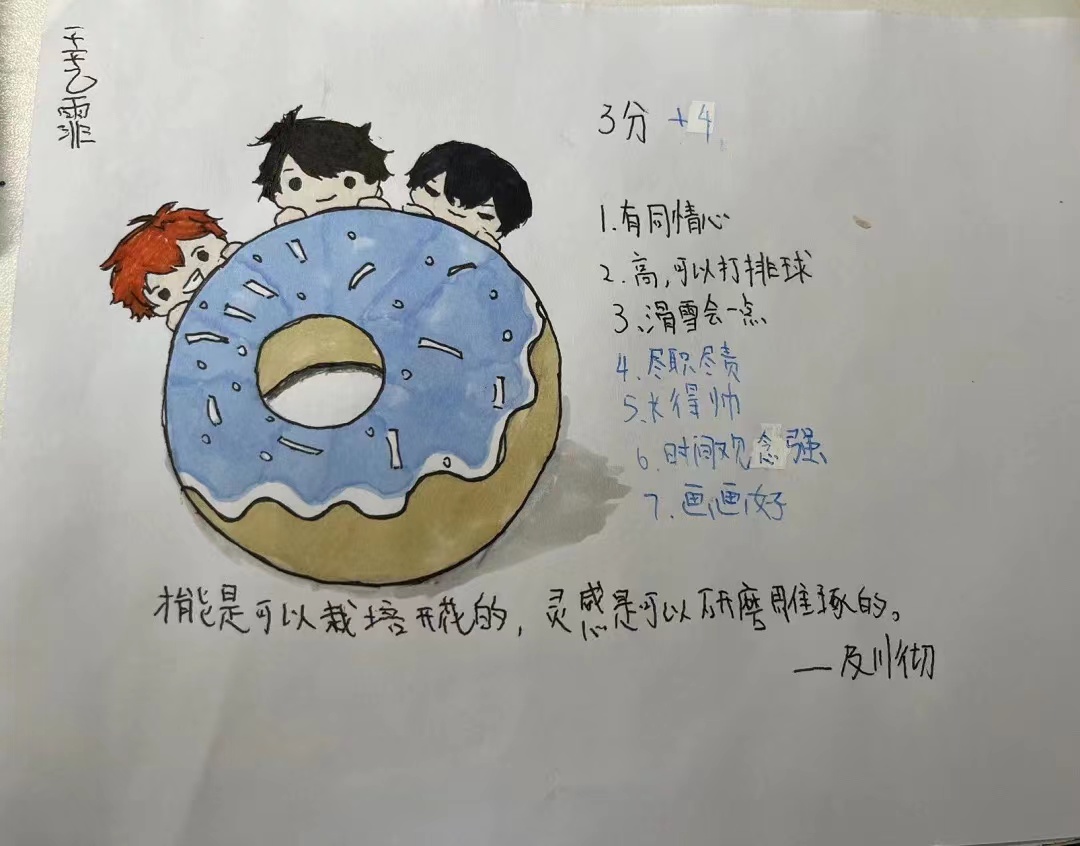 王艺霏
3分 +4
1.有同情心
2.高,可以打排球
3、滑雪会一点
4、尽职尽责
5、长得帅
6.时间观念强
7.画画好
才能是可以栽培开花的，灵感是可以研磨雕琢的。
—及川彻